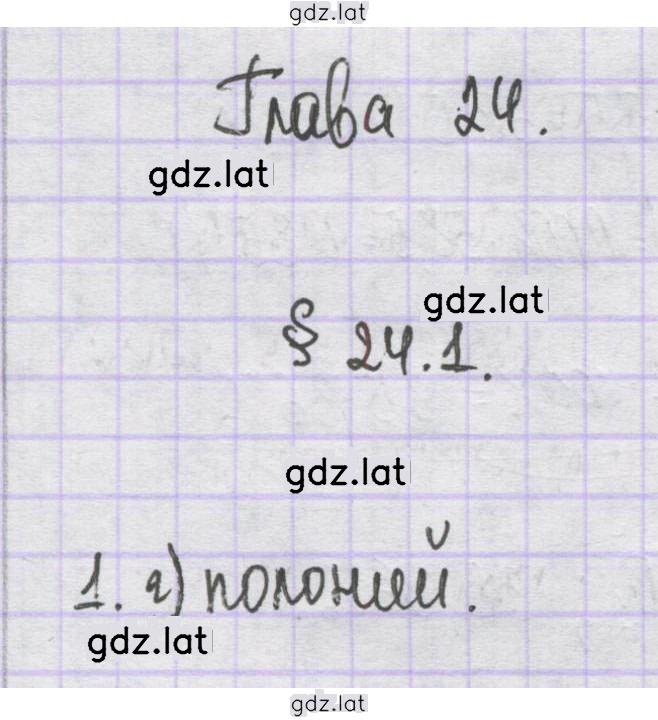 gdz.lat
Глава 24.
gdz.lat
gdz.lat
§ 24.1.
gdz.lat
1. а) полоний.
gdz.lat
gdz.lat